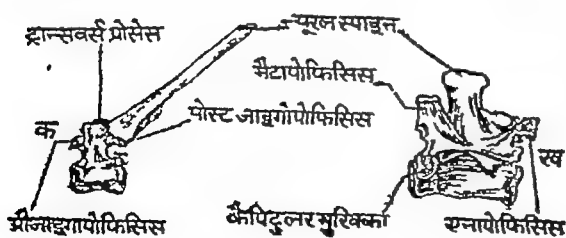 ट्रान्सवर्स प्रोसेस
न्यूरल स्पाइन
मैटापोफिसिस
पोस्ट जाइगोपोफिसिस
क
ख
प्रीजाइगापोफिसिस
कैपिटुलर भुरिक्का
एनापोफिसिस